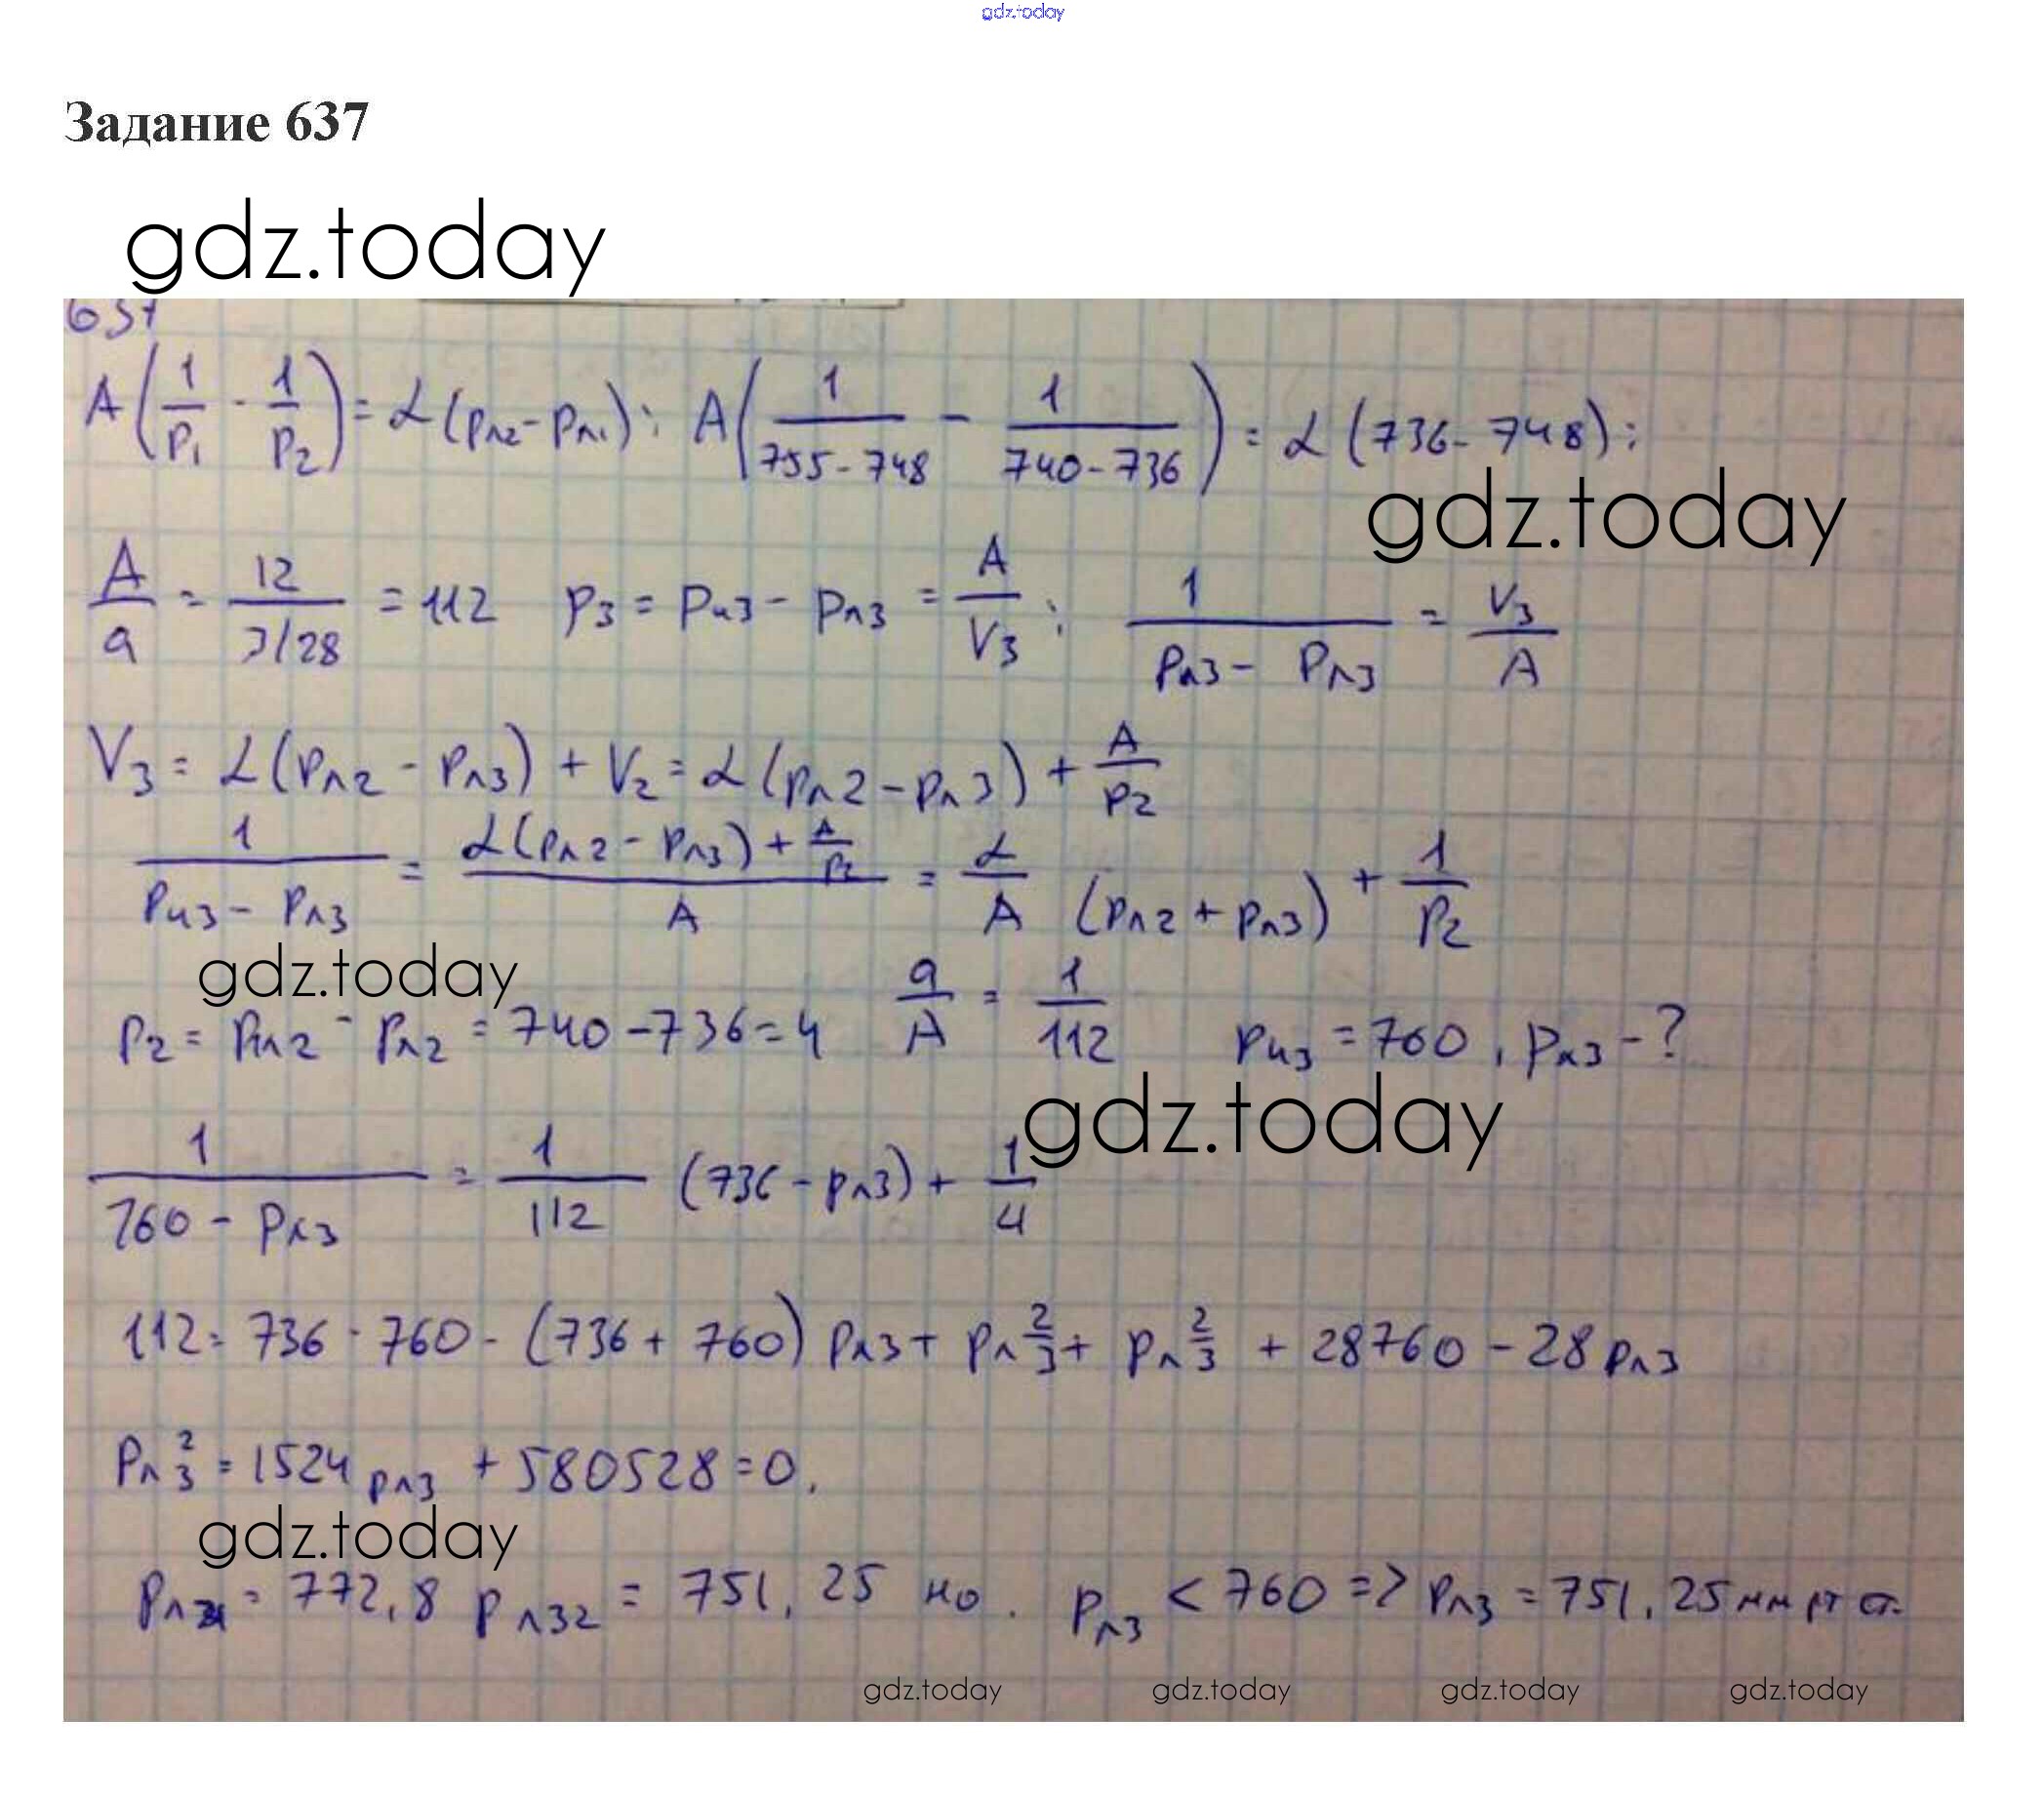 gdz.today
Задание 637
gdz.today
637
A(1/p₁ - 1/p₂) = α(pл2 - pл1); A(1/(755-748) - 1/(740-736)) = α(736-748);
gdz.today
A/a = 12/(3/28) = 112 p3 = pи3 - pл3 = A/V3; 1/(pл3 - pл3) = V3/A
V3 = α(pл2 - pл3) + V2 = α(pл2 - pл3) + A/p2
1/(pи3 - pл3) = (α(pл2 - pл3) + A/p2)/A = α/A (pл2 + pл3) + 1/p2
gdz.today
p2 = pл2 - pл2 = 740 - 736 = 4 a/A = 1/112 pи3 = 760, pл3 - ?
gdz.today
1/(760 - pл3) = 1/112 (736 - pл3) + 1/4
112 = 736 · 760 - (736 + 760) pл3 + pл 2/3 + pл 2/3 + 28760 - 28 pл3
pл²3 = 1524 pл3 + 580528 = 0.
gdz.today
= 772,8 pл32 = 751,25 но. pл3 < 760 => pл3 = 751,25 мм рт ст.
gdz.today gdz.today gdz.today gdz.today